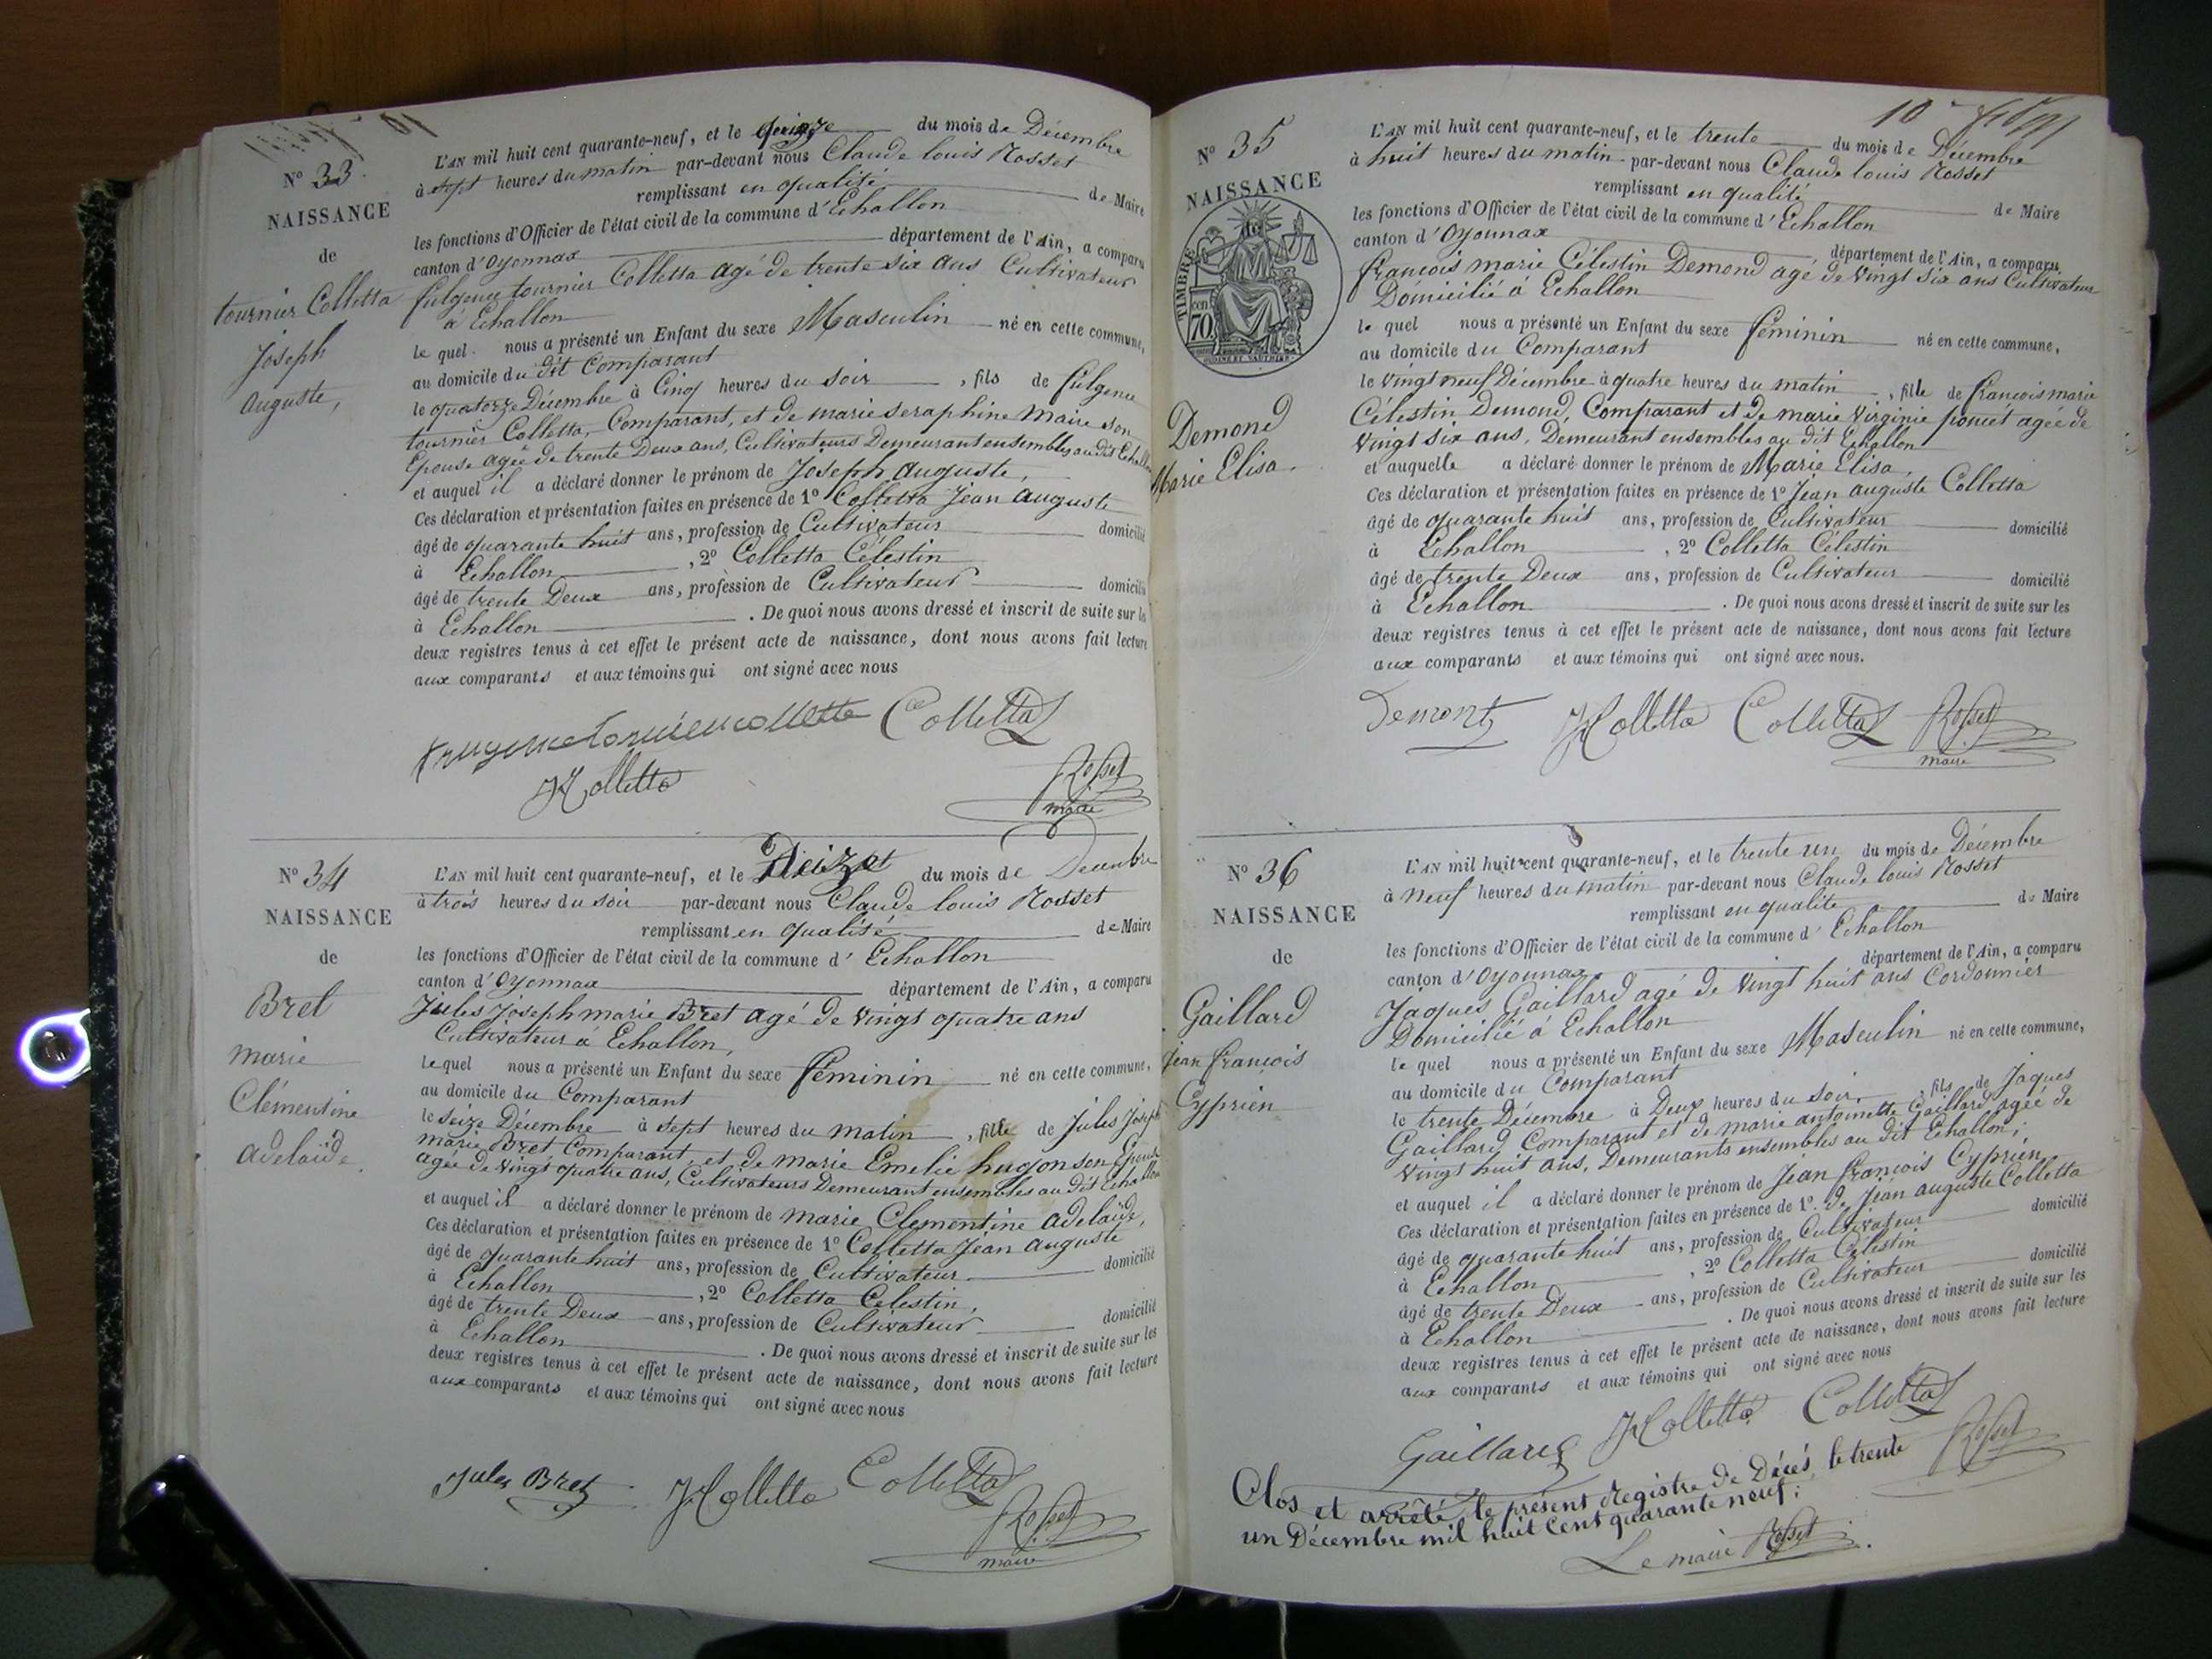 N° 33.
NAISSANCE
de
tournier Colletta
Joseph
auguste,
L'AN mil huit cent quarante-neuf, et le quinze du mois de Décembre
à sept heures du matin par-devant nous Claude louis Rosset
remplissant en qualité de Maire
les fonctions d'Officier de l'état civil de la commune d'Echallon
canton d'Oyonnax département de l'Ain, a comparu
fulgence tournier Colletta agé de trente six ans Cultivateur
à Echallon
le quel nous a présenté un Enfant du sexe Masculin né en cette commune,
au domicile du dit Comparant
le quatorze Décembre à Cinq heures du soir, fils de fulgence
tournier Colletta, Comparant, et de marie seraphine Maire son
Epouse agée de trente Deux ans, Cultivateurs Demeurant ensembles au dit Echallon
et auquel il a déclaré donner le prénom de Joseph auguste,
Ces déclaration et présentation faites en présence de 1° Colletta Jean auguste
âgé de quarante huit ans, profession de Cultivateur domicilié
à Echallon, 2° Colletta Célestin
âgé de trente Deux ans, profession de Cultivateur domicilié
à Echallon. De quoi nous avons dressé et inscrit de suite sur les
deux registres tenus à cet effet le présent acte de naissance, dont nous avons fait lecture
aux comparants et aux témoins qui ont signé avec nous
Colletta
JAColletta
Rosset
maire
N° 34
NAISSANCE
de
Bret
marie
Clémentine
adelaïde.
L'AN mil huit cent quarante-neuf, et le Seize du mois de Decembre
à trois heures du soir par-devant nous Claude louis Rosset
remplissant en qualité de Maire
les fonctions d'Officier de l'état civil de la commune d' Echallon
canton d'Oyonnax département de l'Ain, a comparu
Jules Joseph marie Bret agé de vingt quatre ans
Cultivateur à Echallon,
le quel nous a présenté un Enfant du sexe féminin né en cette commune,
au domicile du Comparant
le seize Décembre à sept heures du matin, fille de Jules Joseph
marie Bret, Comparant, et de marie Emelie hugon son Epouse
agée de vingt quatre ans, Cultivateurs Demeurant ensembles au dit Echallon
et auquel il a déclaré donner le prénom de marie Clementine adelaïde,
Ces déclaration et présentation faites en présence de 1° Colletta Jean auguste
âgé de quarante huit ans, profession de Cultivateur domicilié
à Echallon, 2° Colletta Celestin,
âgé de trente Deux ans, profession de Cultivateur domicilié
à Echallon. De quoi nous avons dressé et inscrit de suite sur les
deux registres tenus à cet effet le présent acte de naissance, dont nous avons fait lecture
aux comparants et aux témoins qui ont signé avec nous
Jules Bret JAColletta Colletta
Rosset
maire
10
N° 35
NAISSANCE
de
TIMBRE
cen
70.
Demond
Marie Elisa.
L'AN mil huit cent quarante-neuf, et le trente du mois de Décembre
à huit heures du matin par-devant nous Claude louis Rosset
remplissant en qualité de Maire
les fonctions d'Officier de l'état civil de la commune d'Echallon
canton d'Oyonnax département de l'Ain, a comparu
françois marie Célestin Demond agé de vingt six ans Cultivateur
Domicilié à Echallon
le quel nous a présenté un Enfant du sexe féminin né en cette commune,
au domicile du Comparant
le vingt neuf Décembre à quatre heures du matin, fille de françois marie
Célestin Demond, Comparant et de marie Virginie poncet agée de
vingt six ans, Demeurant ensembles au dit Echallon
et auquelle a déclaré donner le prénom de Marie Elisa,
Ces déclaration et présentation faites en présence de 1° Jean auguste Colletta
âgé de quarante huit ans, profession de Cultivateur domicilié
à Echallon, 2° Colletta Célestin
âgé de trente Deux ans, profession de Cultivateur domicilié
à Echallon. De quoi nous avons dressé et inscrit de suite sur les
deux registres tenus à cet effet le présent acte de naissance, dont nous avons fait lecture
aux comparants et aux témoins qui ont signé avec nous.
Demont JAColletta Colletta Rosset
maire
N° 36
NAISSANCE
de
Gaillard
Jean françois
Cyprien
L'AN mil huit cent quarante-neuf, et le trente un du mois de Décembre
à neuf heures du matin par-devant nous Claude louis Rosset
remplissant en qualité de Maire
les fonctions d'Officier de l'état civil de la commune d' Echallon
canton d'Oyonnax département de l'Ain, a comparu
Jaques Gaillard agé de vingt huit ans Cordonnier
Domicilié à Echallon
le quel nous a présenté un Enfant du sexe Masculin né en cette commune,
au domicile du Comparant
le trente Décembre à Deux heures du soir, fils de Jaques
Gaillard Comparant et de marie antoinette Gaillard agée de
vingt huit ans, Demeurants ensembles au dit Echallon;
et auquel il a déclaré donner le prénom de Jean françois Cyprien,
Ces déclaration et présentation faites en présence de 1°. de Jean auguste Colletta
âgé de quarante huit ans, profession de Cultivateur domicilié
à Echallon, 2° Colletta Célestin
âgé de trente Deux ans, profession de Cultivateur domicilié
à Echallon. De quoi nous avons dressé et inscrit de suite sur les
deux registres tenus à cet effet le présent acte de naissance, dont nous avons fait lecture
aux comparants et aux témoins qui ont signé avec nous
Gaillard JAColletta Colletta
Rosset
Clos et arrêté le présent Registre de Décès, le trente
un Décembre mil huit Cent quarante neuf;
Le maire Rosset